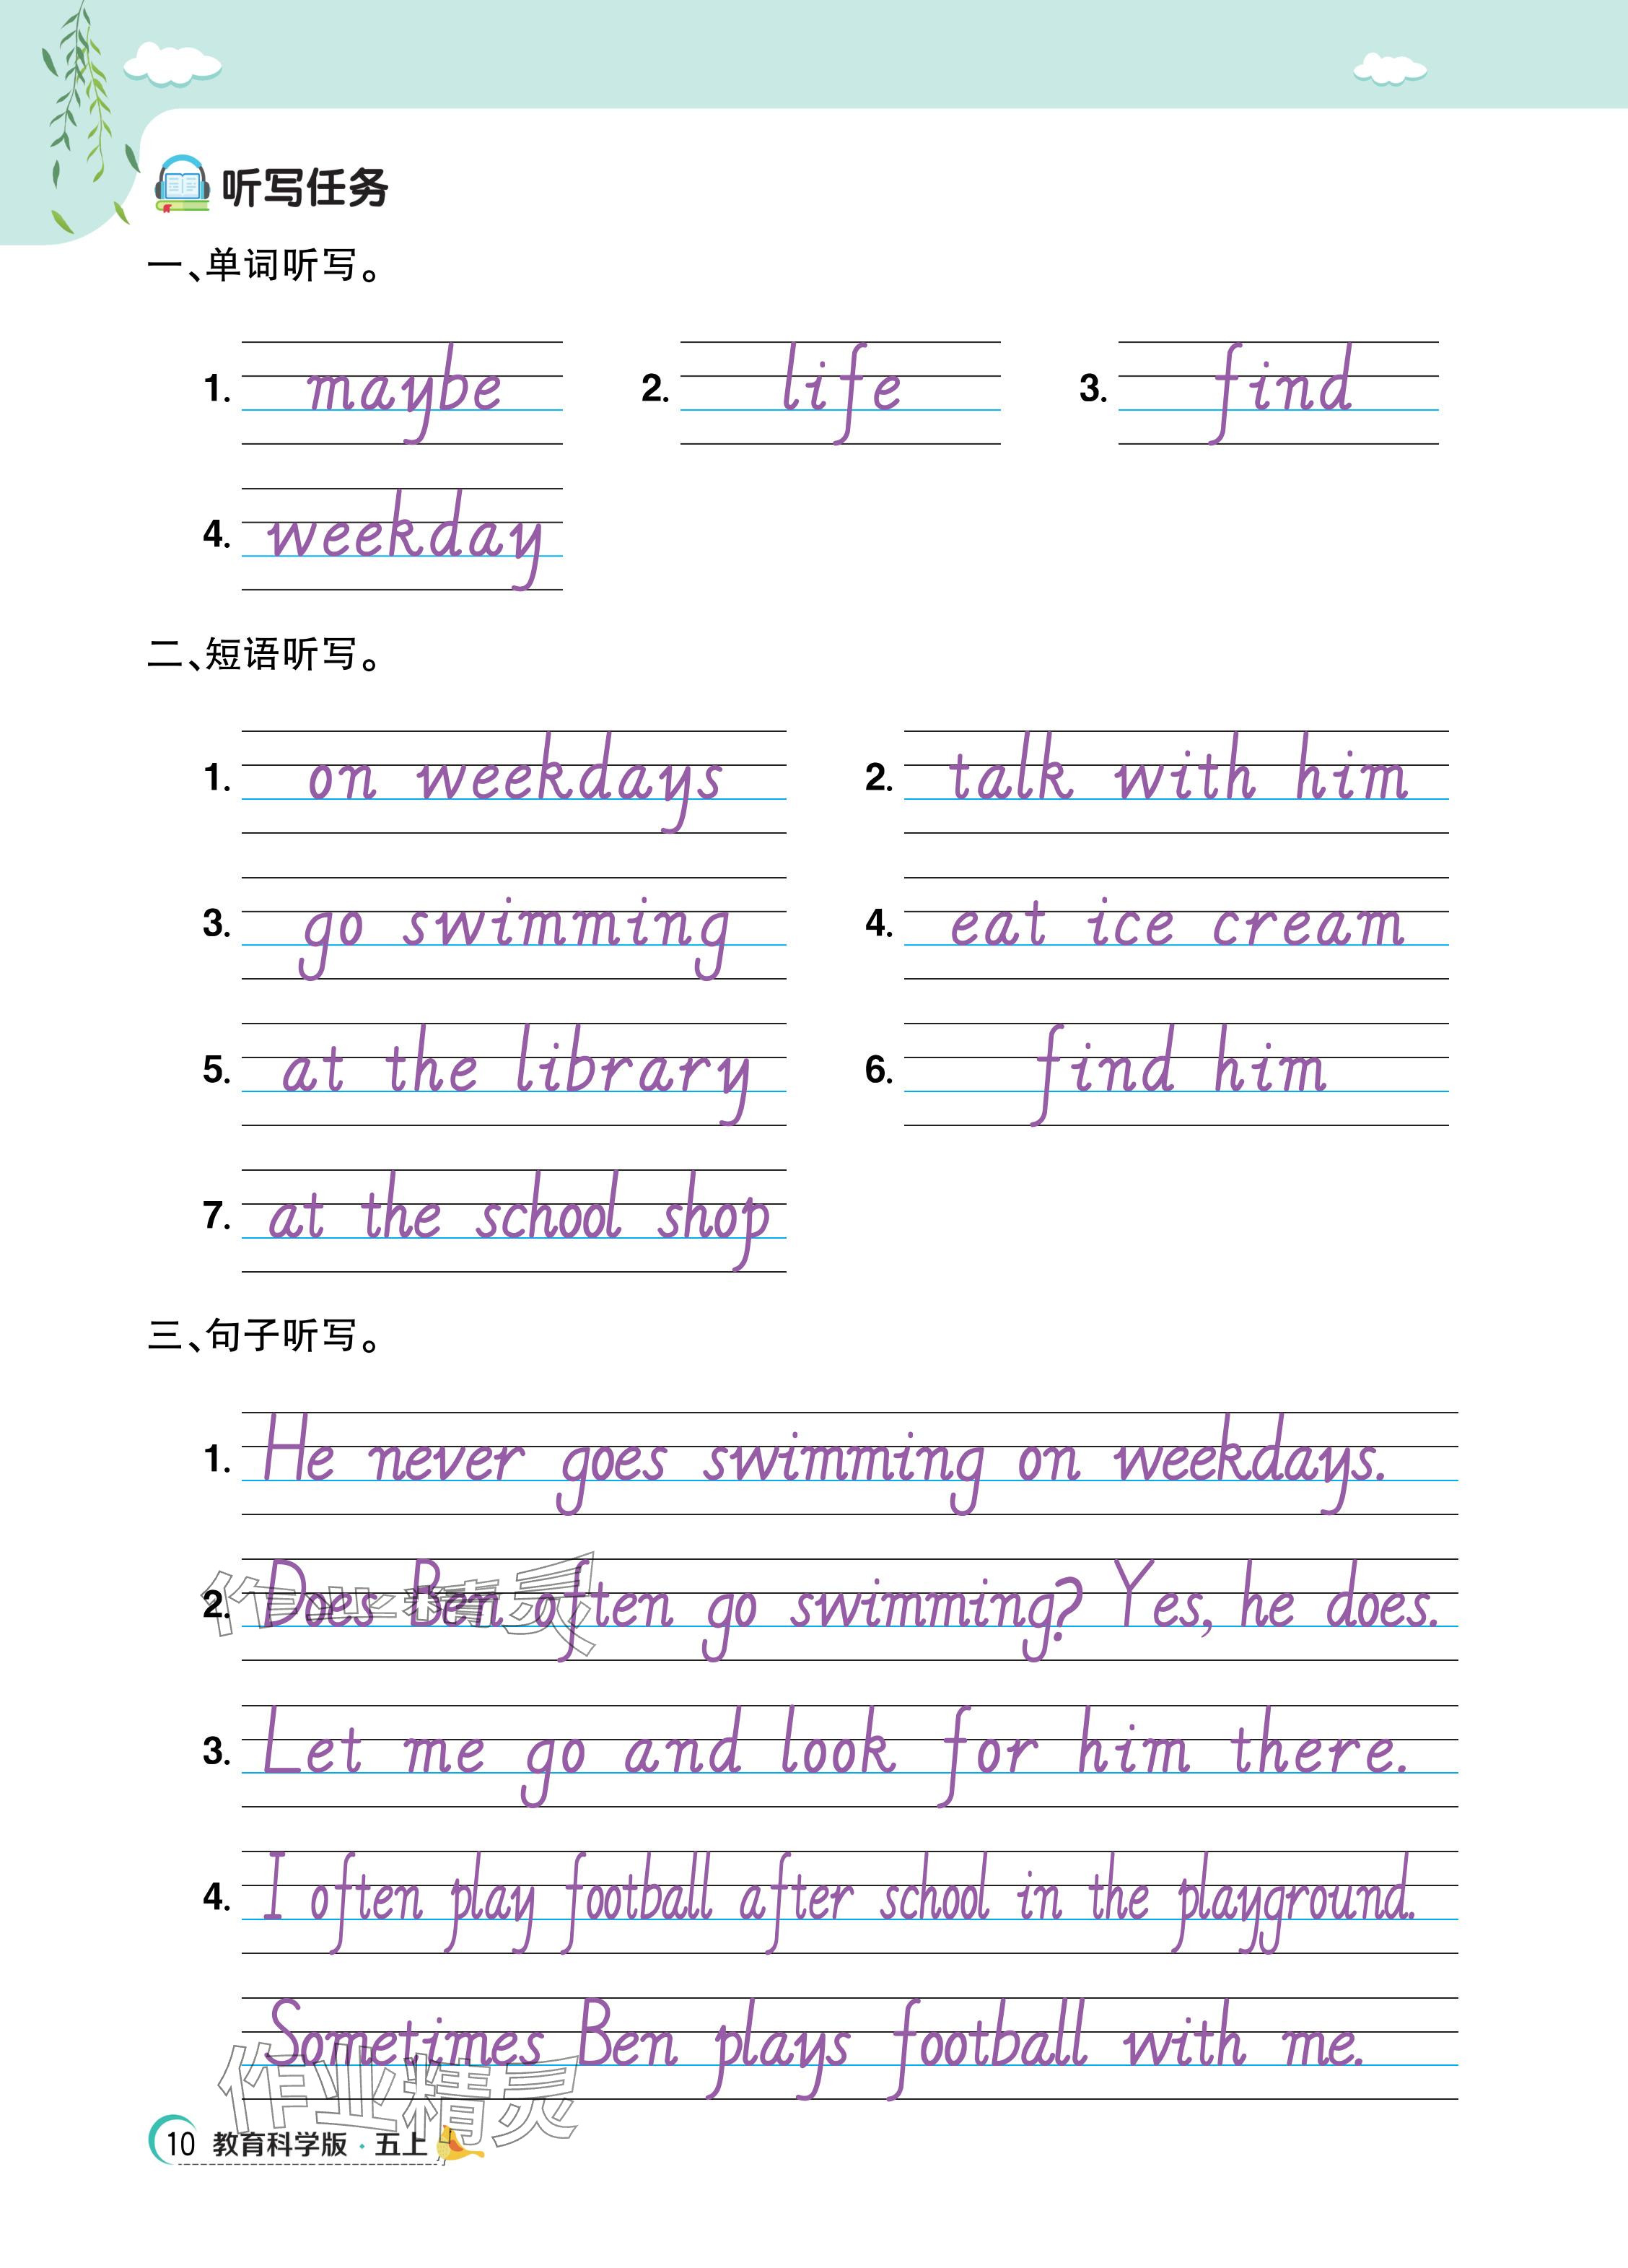 听写任务
一、单词听写。
1. maybe 2. life 3. find
4. weekday
二、短语听写。
1. on weekdays 2. talk with him
3. go swimming 4. eat ice cream
5. at the library 6. find him
7. at the school shop
三、句子听写。
1. He never goes swimming on weekdays.
2. Does Ben often go swimming? Yes, he does.
作业精灵
3. Let me go and look for him there.
4. I often play football after school in the playground.
Sometimes Ben plays football with me.
作业精灵
10 教育科学版·五上